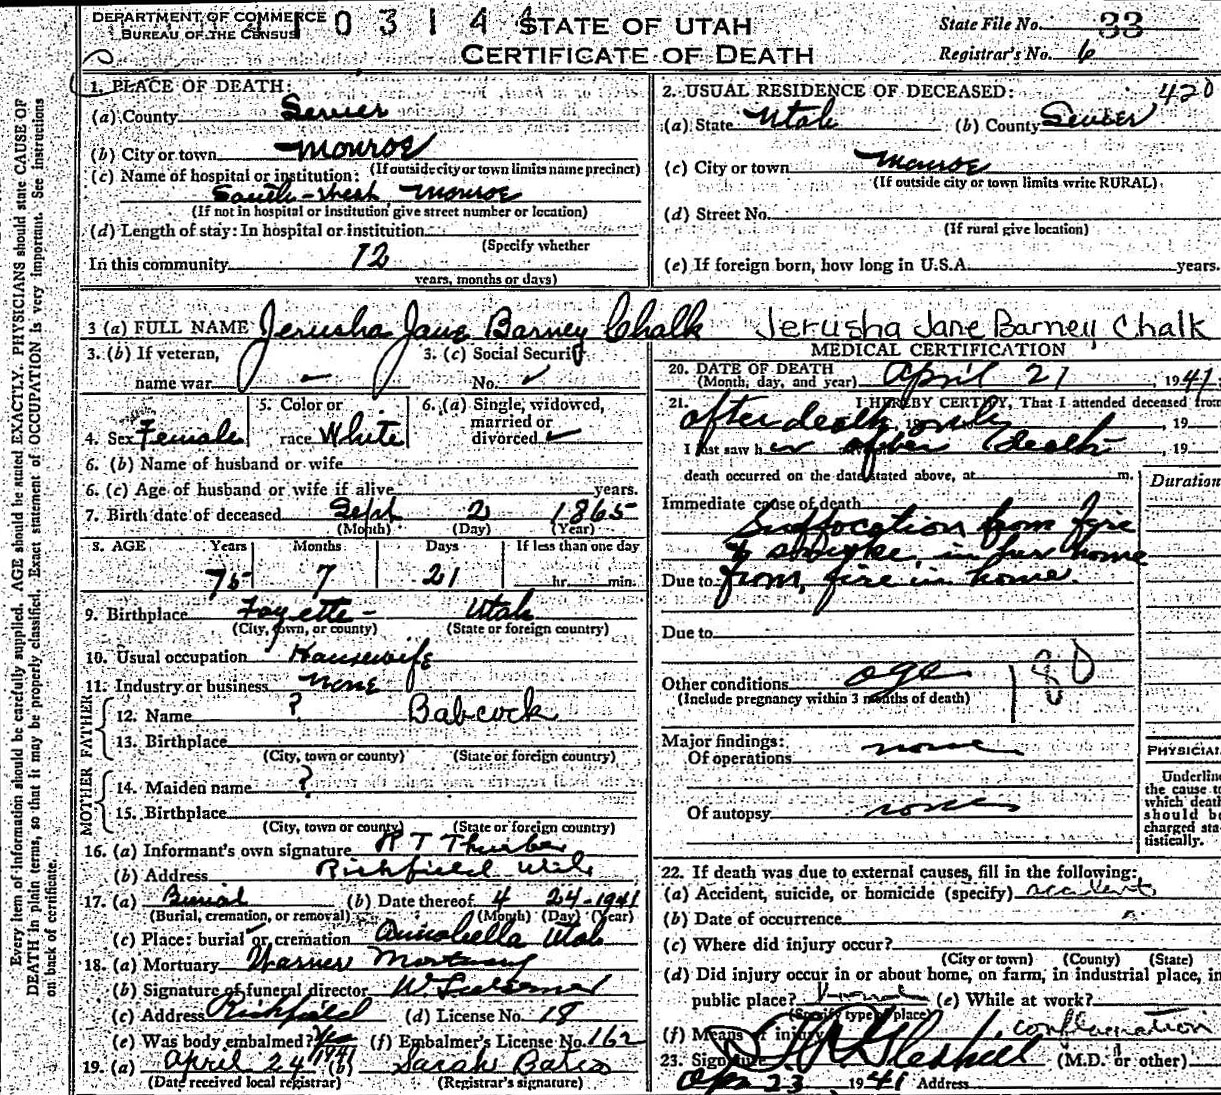 DEPARTMENT OF COMMERCE
BUREAU OF THE CENSUS
0 3 1 4 4
STATE OF UTAH
CERTIFICATE OF DEATH
State File No. 33
Registrar's No. 6
1. PLACE OF DEATH:
(a) County Sevier
(b) City or town Monroe
(If outside city or town limits name precinct)
(c) Name of hospital or institution:
South-West Monroe
(If not in hospital or institution give street number or location)
(d) Length of stay: In hospital or institution
(Specify whether
In this community 12
years, months or days)
2. USUAL RESIDENCE OF DECEASED: 420
(a) State Utah (b) County Sevier
(c) City or town Monroe
(If outside city or town limits write RURAL)
(d) Street No.
(If rural give location)
(e) If foreign born, how long in U.S.A. years.
3 (a) FULL NAME Jerusha Jane Barney Chalk Jerusha Jane Barney Chalk
3. (b) If veteran, 3. (c) Social Security
name war - No. ✓
4. Sex Female 5. Color or race White 6. (a) Single, widowed, married or divorced
6. (b) Name of husband or wife
6. (c) Age of husband or wife if alive years.
7. Birth date of deceased Sept 2 1865
(Month) (Day) (Year)
8. AGE Years Months Days If less than one day
75 7 21 hr. min.
9. Birthplace Fayette - Utah
(City, town, or county) (State or foreign country)
10. Usual occupation Housewife
11. Industry or business None
FATHER
12. Name ? Babcock
13. Birthplace
(City, town or county) (State or foreign country)
MOTHER
14. Maiden name ?
15. Birthplace
(City, town or county) (State or foreign country)
16. (a) Informant's own signature R T Thurber
(b) Address Richfield Utah
17. (a) Burial (b) Date thereof 4 24-1941
(Burial, cremation, or removal) (Month) (Day) (Year)
(c) Place: burial or cremation Annabella Utah
18. (a) Mortuary Warner Mortuary
(b) Signature of funeral director
(c) Address Richfield (d) License No. 18
(e) Was body embalmed? Yes (f) Embalmer's License No. 162
19. (a) April 24 1941 (b) Sarah Bates
(Date received local registrar) (Registrar's signature)
MEDICAL CERTIFICATION
20. DATE OF DEATH
(Month, day, and year) April 21, 1941
21. I HEREBY CERTIFY, That I attended deceased from
after death only, 19
I last saw her after death, 19
death occurred on the date stated above, at m.
Duration
Immediate cause of death
Suffocation from fire
& smoke in her home
Due to from fire in home.
Due to
Other conditions age 180
(Include pregnancy within 3 months of death)
Major findings:
Of operations none
Of autopsy none
PHYSICIAN
Underline
the cause to
which death
should be
charged sta-
tistically.
22. If death was due to external causes, fill in the following:
(a) Accident, suicide, or homicide (specify) accident
(b) Date of occurrence
(c) Where did injury occur?
(City or town) (County) (State)
(d) Did injury occur in or about home, on farm, in industrial place, in
public place? home (e) While at work?
(Specify type of place)
(f) Means of injury conflagration
23. Signature (M.D. or other)
Apr 23 1941 Address
Every item of information should be carefully supplied. AGE should be stated EXACTLY. PHYSICIANS should state CAUSE OF
DEATH in plain terms, so that it may be properly classified. Exact statement of OCCUPATION is very important. See instructions
on back of certificate.